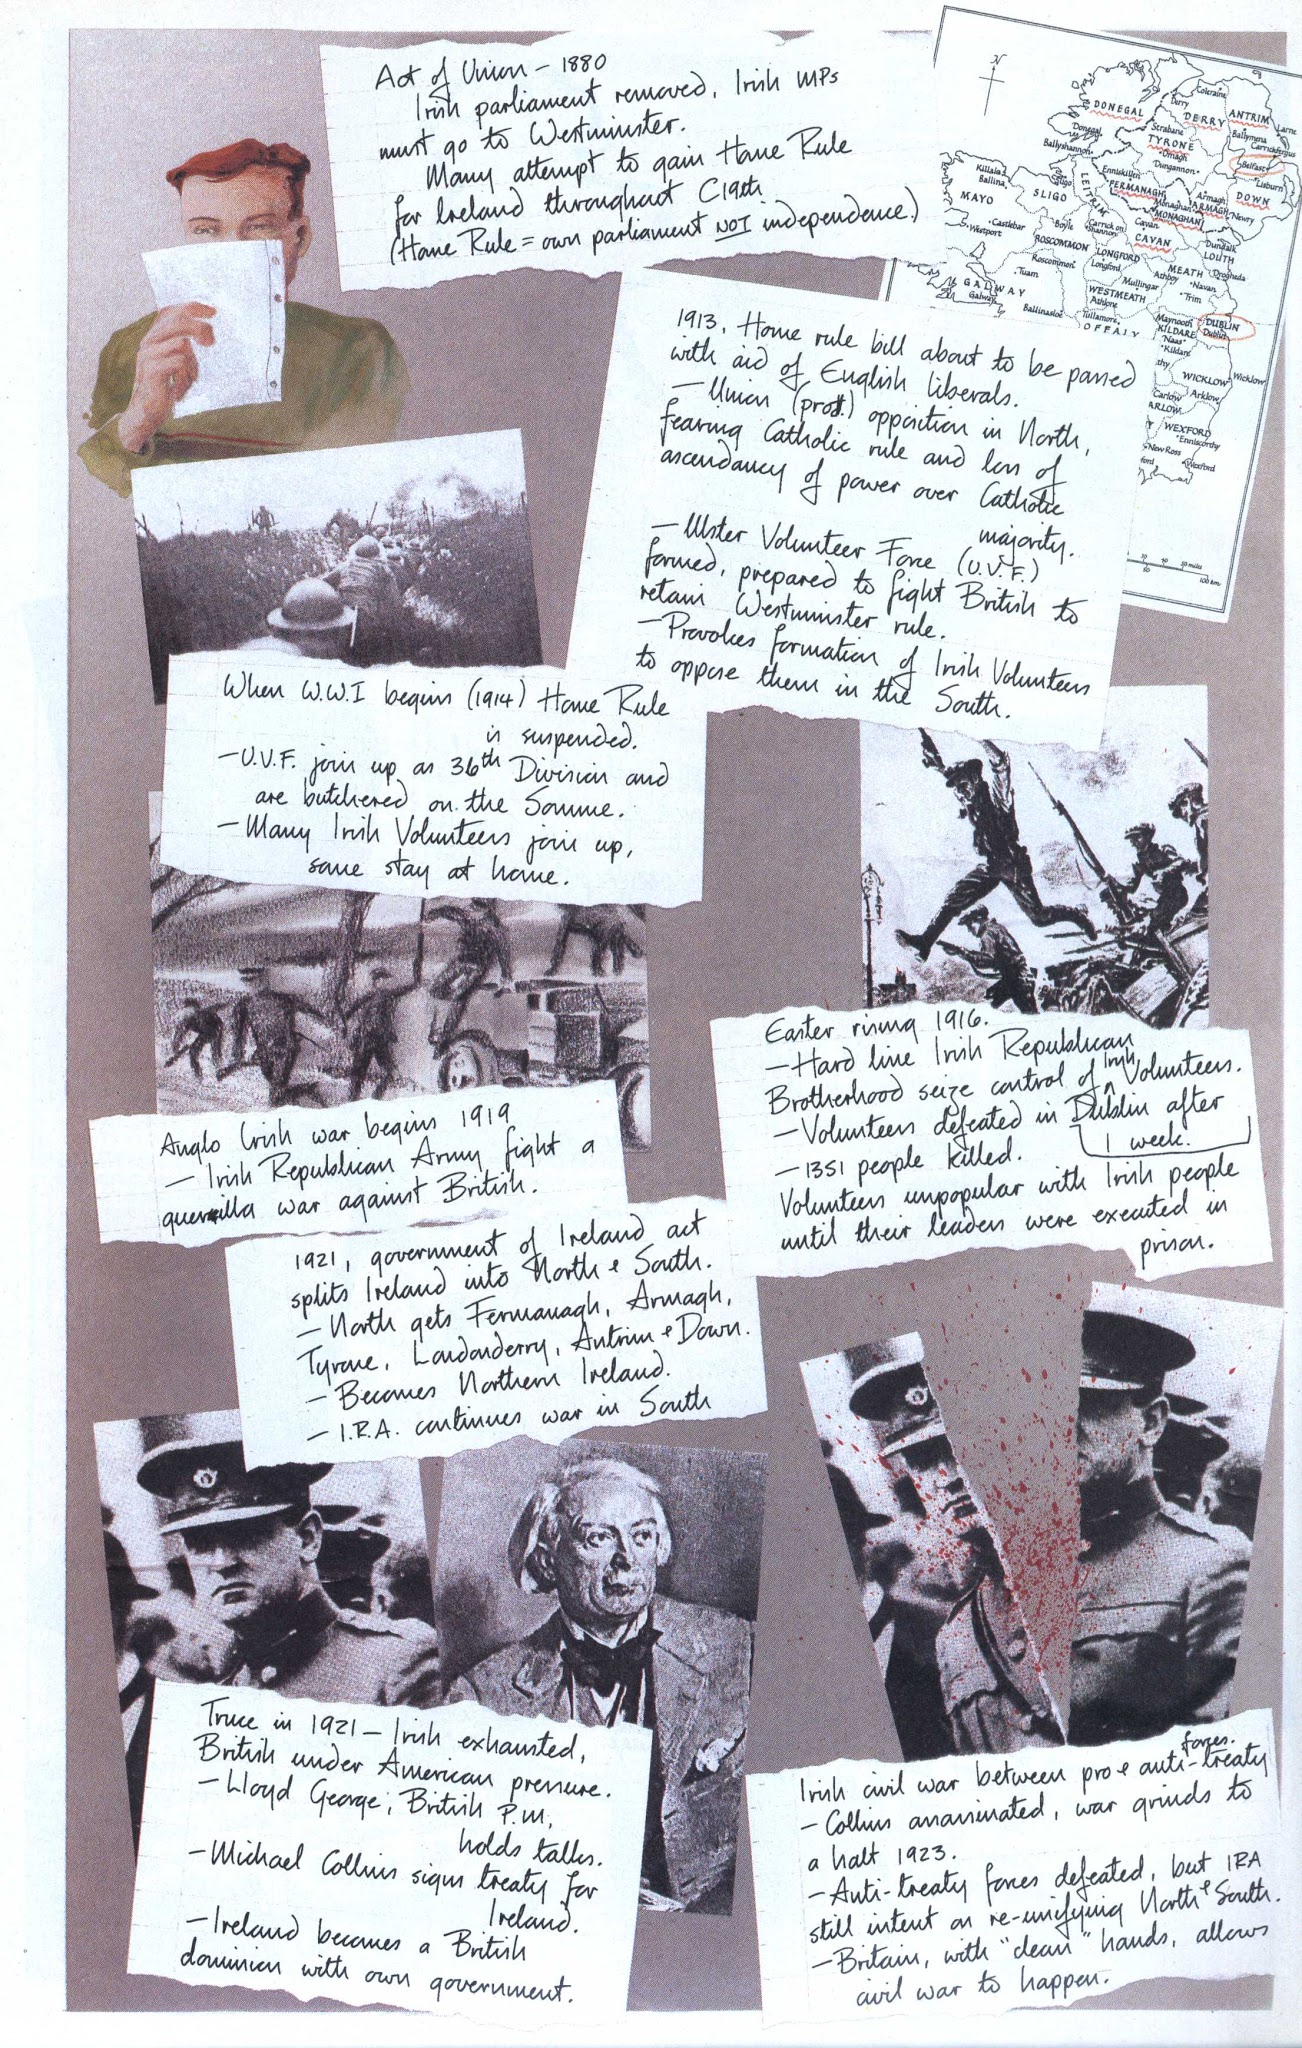 Act of Union – 1880
Irish parliament removed, Irish MPs
must go to Westminster.
Many attempt to gain Home Rule
for Ireland throughout C19th
(Home Rule = own parliament NOT independence.)
N
DONEGAL
DERRY
ANTRIM
TYRONE
FERMANAGH
ARMAGH
MONAGHAN
DOWN
CAVAN
LEITRIM
SLIGO
MAYO
ROSCOMMON
LONGFORD
LOUTH
MEATH
WESTMEATH
GALWAY
OFFALY
DUBLIN
KILDARE
WICKLOW
WEXFORD
Coleraine
Derry
Larne
Strabane
Ballymena
Carrickfergus
Donegal
Ballyshannon
Omagh
Dungannon
Belfast
Lisburn
Enniskillen
Killala
Ballina
Sligo
Armagh
Monaghan
Newry
Castlebar
Westport
Boyle
Carrick on Shannon
Cavan
Dundalk
Roscommon
Longford
Drogheda
Tuam
Mullingar
Athboy
Navan
Trim
Galway
Ballinasloe
Athlone
Tullamore
Maynooth
Dublin
Naas
Kildare
Wicklow
Carlow
Arklow
Enniscorthy
New Ross
Wexford
1913, Home rule bill about to be passed
with aid of English liberals.
– Union (prot.) opposition in North,
fearing Catholic rule and loss of
ascendancy of power over Catholic
majority.
– Ulster Volunteer Force (U.V.F.)
formed, prepared to fight British to
retain Westminster rule.
– Provokes formation of Irish Volunteers
to oppose them in the South.
When W.W.I begins (1914) Home Rule
is suspended.
– U.V.F. join up as 36th Division and
are butchered on the Somme.
– Many Irish Volunteers join up,
some stay at home.
Easter rising 1916.
– Hard line Irish Republican
Brotherhood seize control of Irish Volunteers.
– Volunteers defeated in Dublin after
1 week.
– 1351 people killed.
Volunteers unpopular with Irish people
until their leaders were executed in
prison.
Anglo Irish war begins 1919
– Irish Republican Army fight a
guerrilla war against British.
1921, government of Ireland act
splits Ireland into North & South.
– North gets Fermanagh, Armagh,
Tyrone, Londonderry, Antrim & Down.
– Becomes Northern Ireland.
– I.R.A. continues war in South
Truce in 1921 – Irish exhausted,
British under American pressure.
– Lloyd George, British P.M.,
holds talks.
– Michael Collins signs treaty for
Ireland.
– Ireland becomes a British
dominion with own government.
Irish civil war between pro & anti-treaty
forces.
– Collins assassinated, war grinds to
a halt 1923.
– Anti-treaty forces defeated, but IRA
still intent on re-unifying North & South.
– Britain, with "clean" hands, allows
civil war to happen.